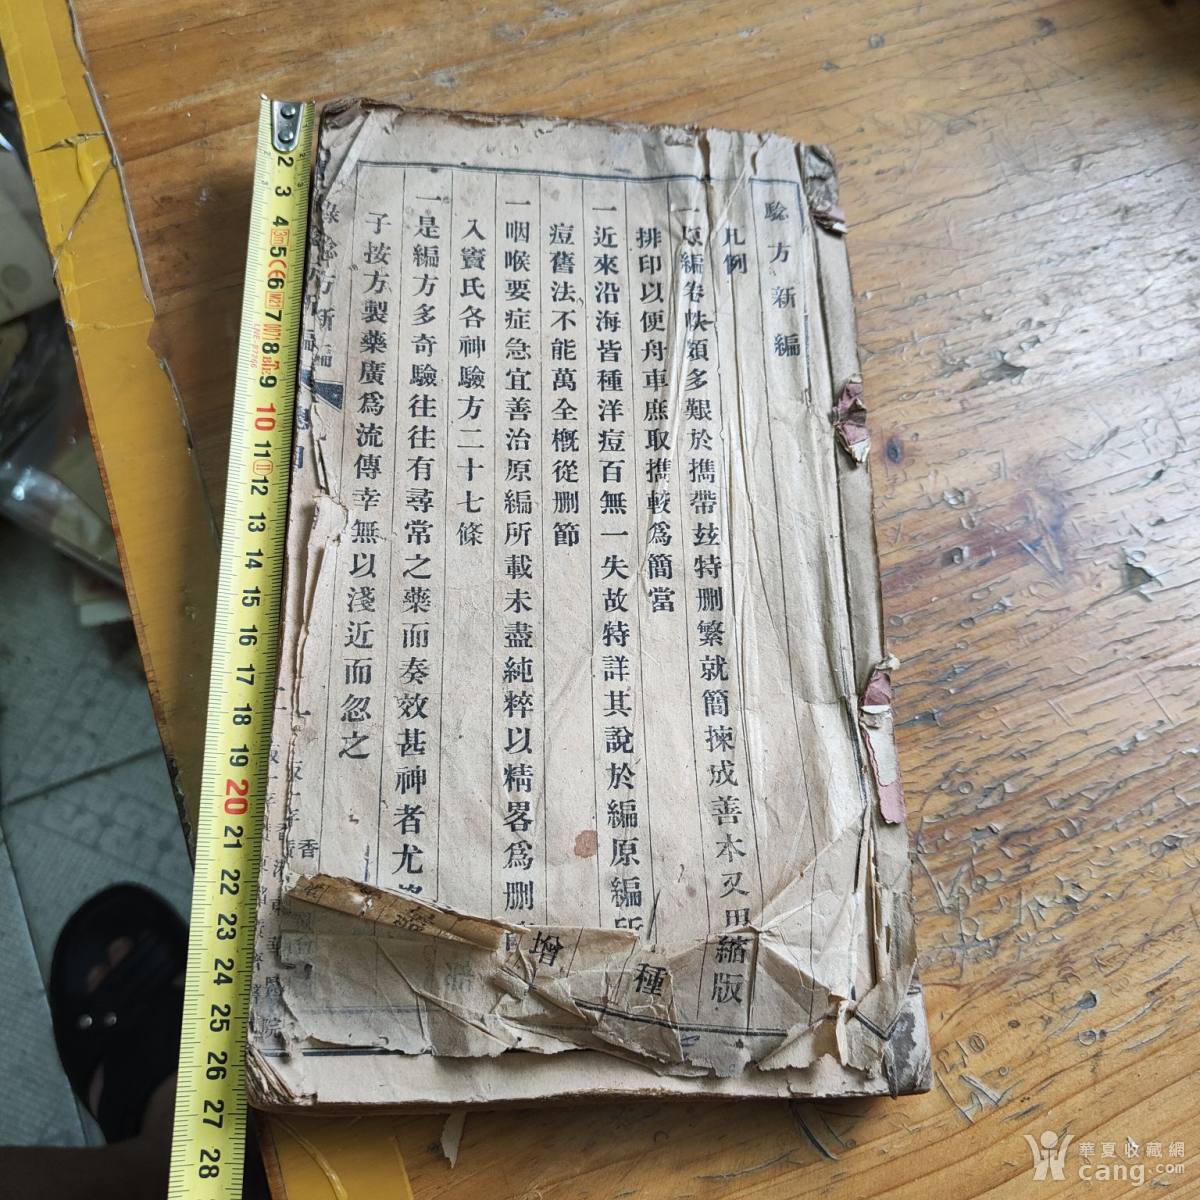 驗方新編
凡例
一原編卷帙頗多艱於攜帶玆特刪繁就簡揀成善本又用縮版
排印以便舟車庶取攜較爲簡當
一近來沿海皆種洋痘百無一失故特詳其說於編原編所
種
痘舊法不能萬全槪從刪節
一咽喉要症急宜善治原編所載未盡純粹以精畧爲刪
增
入竇氏各神驗方二十七條
一是編方多奇驗往往有尋常之藥而奏效甚神者尤
子按方製藥廣爲流傳幸無以淺近而忽之
驗方新編
2 3 4 5 6 7 8 9 10 11 12 13 14 15 16 17 18 19 20 21 22 23 24 25 26 27 28
3m
CE
華夏收藏網
cang.com